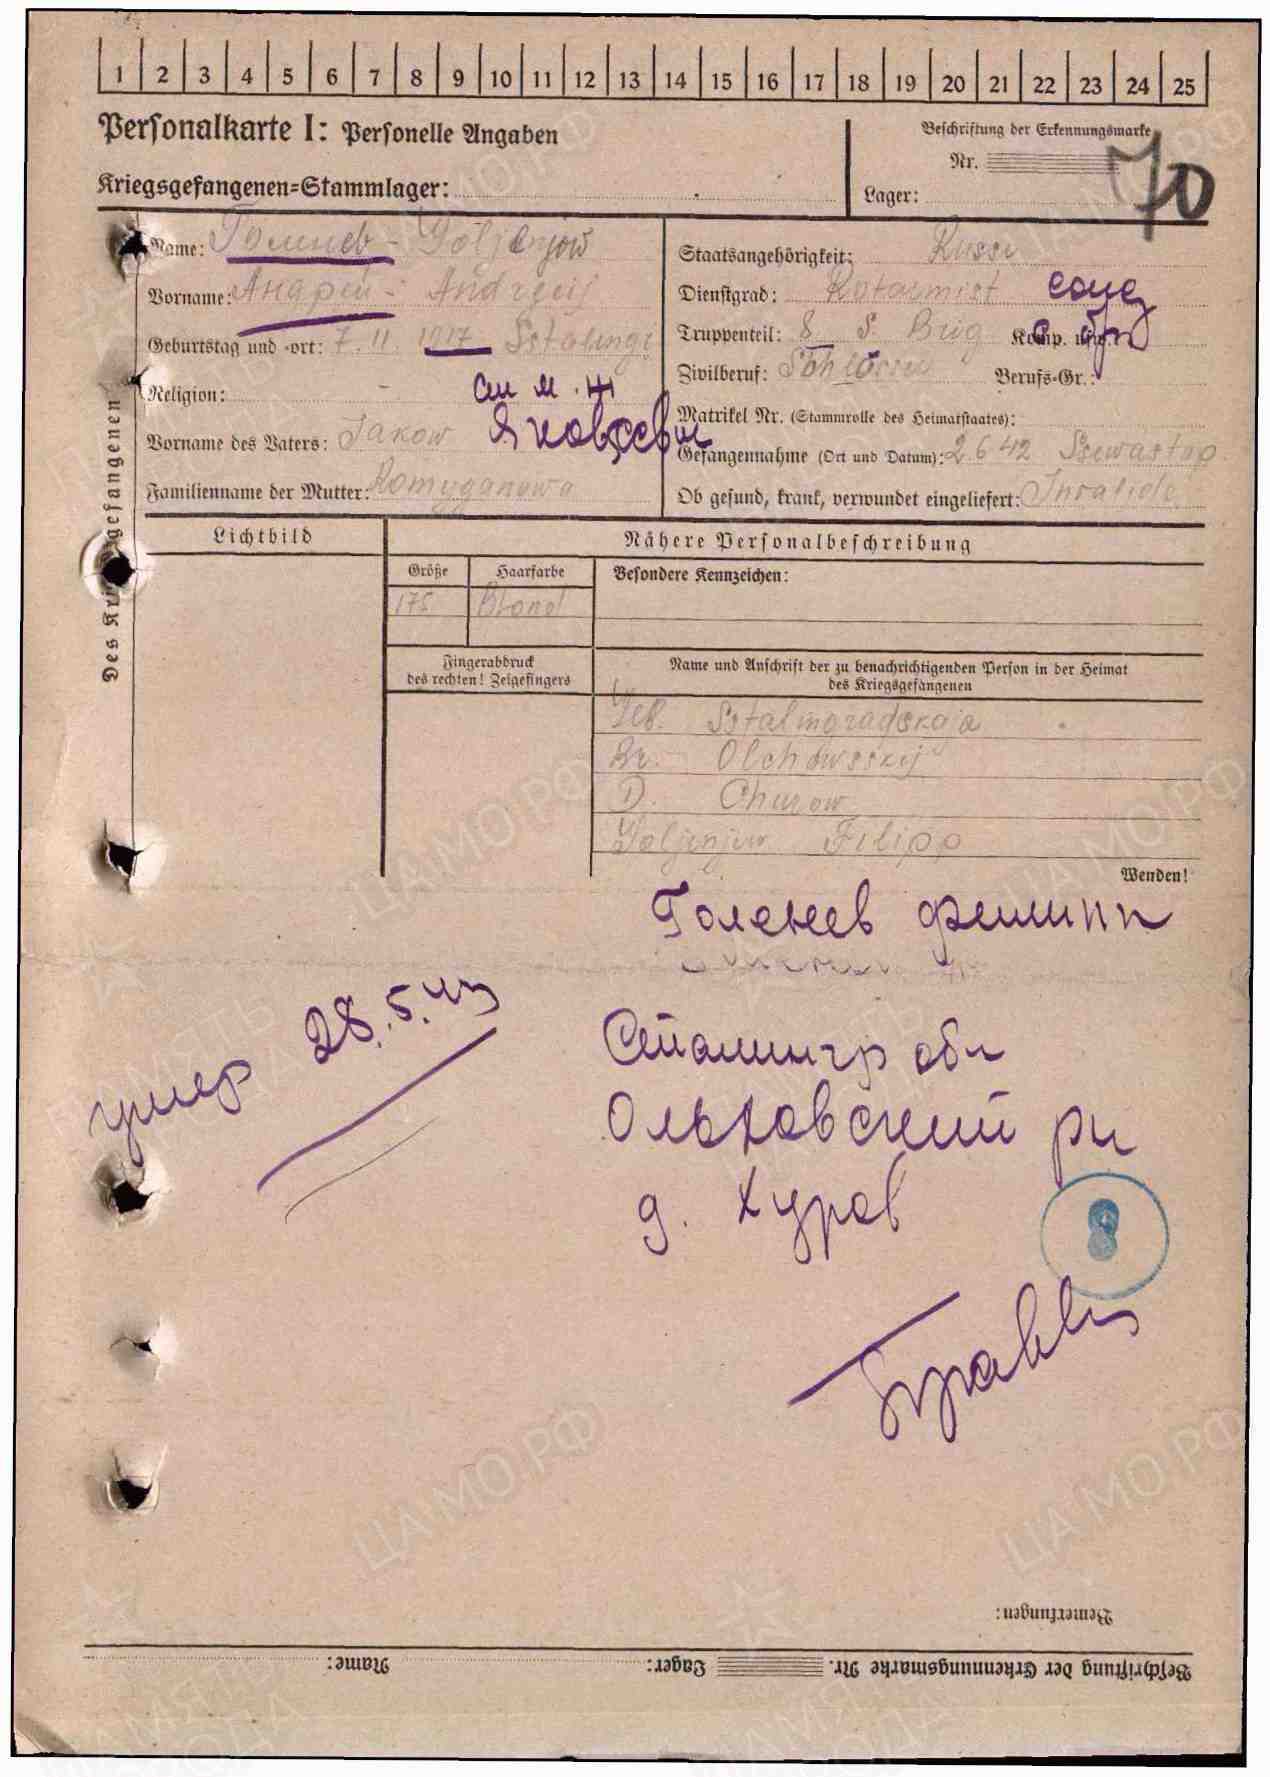 1 2 3 4 5 6 7 8 9 10 11 12 13 14 15 16 17 18 19 20 21 22 23 24 25
Personalkarte I: Personelle Angaben
Kriegsgefangenen=Stammlager:
Beschriftung der Erkennungsmarke
Nr.
70
Lager:
Des Kr gefangenen
Name: Голенев - Goljenjow
Vorname: Андрей - Andrzeij
Geburtstag und -ort: 7. 11 1917 Sstalingr
Religion: -
Vorname des Vaters: Jakow Яковлевич
Familienname der Mutter:
Staatsangehörigkeit: Russe
Dienstgrad: Rotarmist солд
Truppenteil: 8 S. Brig Komp. usw.: с. бр
Zivilberuf: Schlosser Berufs-Gr.:
Matrikel Nr. (Stammrolle des Heimatstaates):
Gefangennahme (Ort und Datum): 2.6 42 Ssewastop.
Ob gesund, krank, verwundet eingeliefert: Invalide
Lichtbild
Nähere Personalbeschreibung
Größe
Haarfarbe
Besondere Kennzeichen:
175
Blond
Fingerabdruck
des rechten! Zeigefingers
Name und Anschrift der zu benachrichtigenden Person in der Heimat
des Kriegsgefangenen
Geb. Sstalingradskaja
Olchowsskij
D. Churow
Goljenjew Filipp
Wenden!
Голенев Филипп
умер 28.5.43
Сталингр обл
Ольховский рн
д. Хуров
8
Bemerkungen:
Beschriftung der Erkennungsmarke Nr. Lager: Name:
ЦАМО.РФ
ПАМЯТЬ
НАРОДА